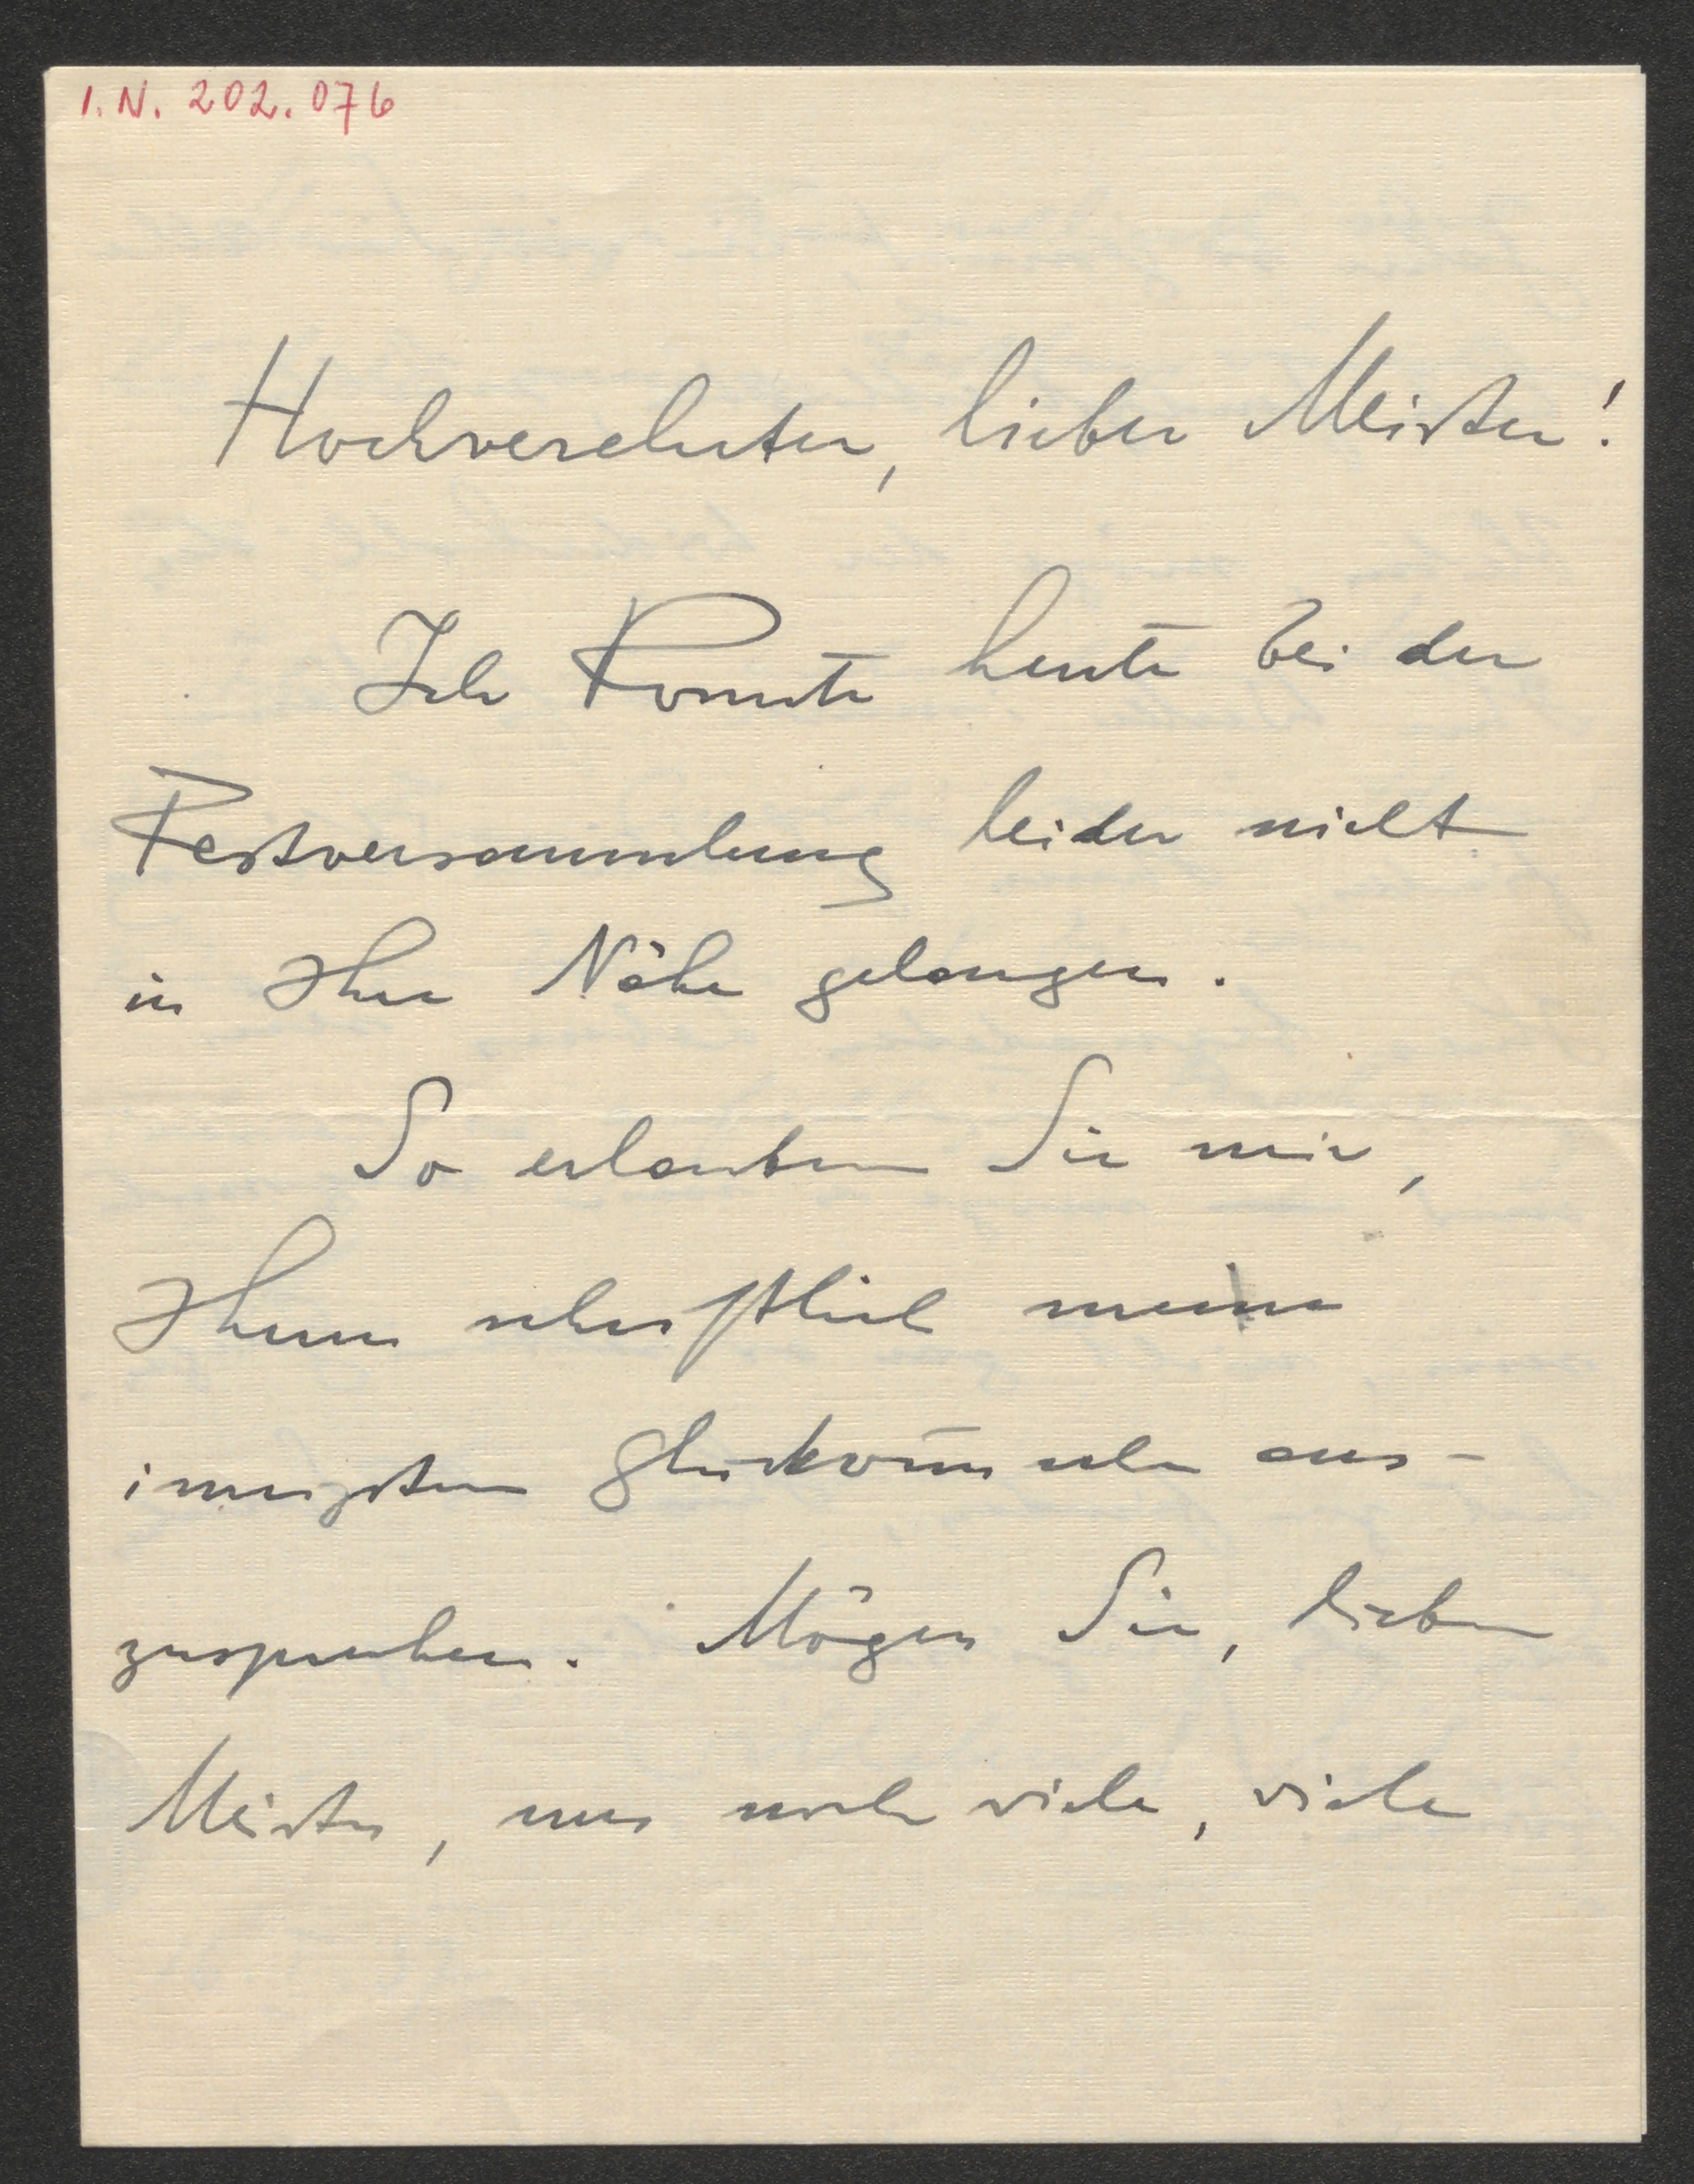 I. N. 202.076
Hochverehrter, lieber Meister!
Ich konnte heute bei der
Festversammlung leider nicht
in Ihre Nähe gelangen.
So erlauben Sie mir,
Ihnen schriftlich meine
innigsten Glückwünsche aus-
zusprechen. Mögen Sie, lieber
Meister, uns noch viele, viele